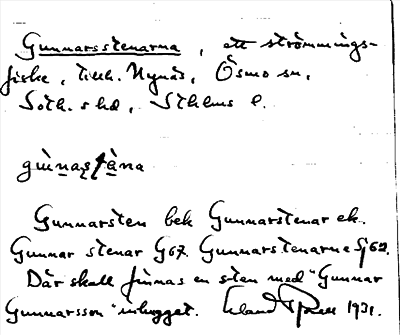 Gunnarsstenarna, ett strömmings-
fiske, tillh. Nynäs, Ösmo sn,
Soth. shd, Sthlms l.
Gunnarsten bek Gunnarstenar ek.
Gunnar stenar G67. Gunnarstenarne Sj62.
Där skall finnas en sten med "Gunnar
Gunnarsson" inhugget. Erland 1931.